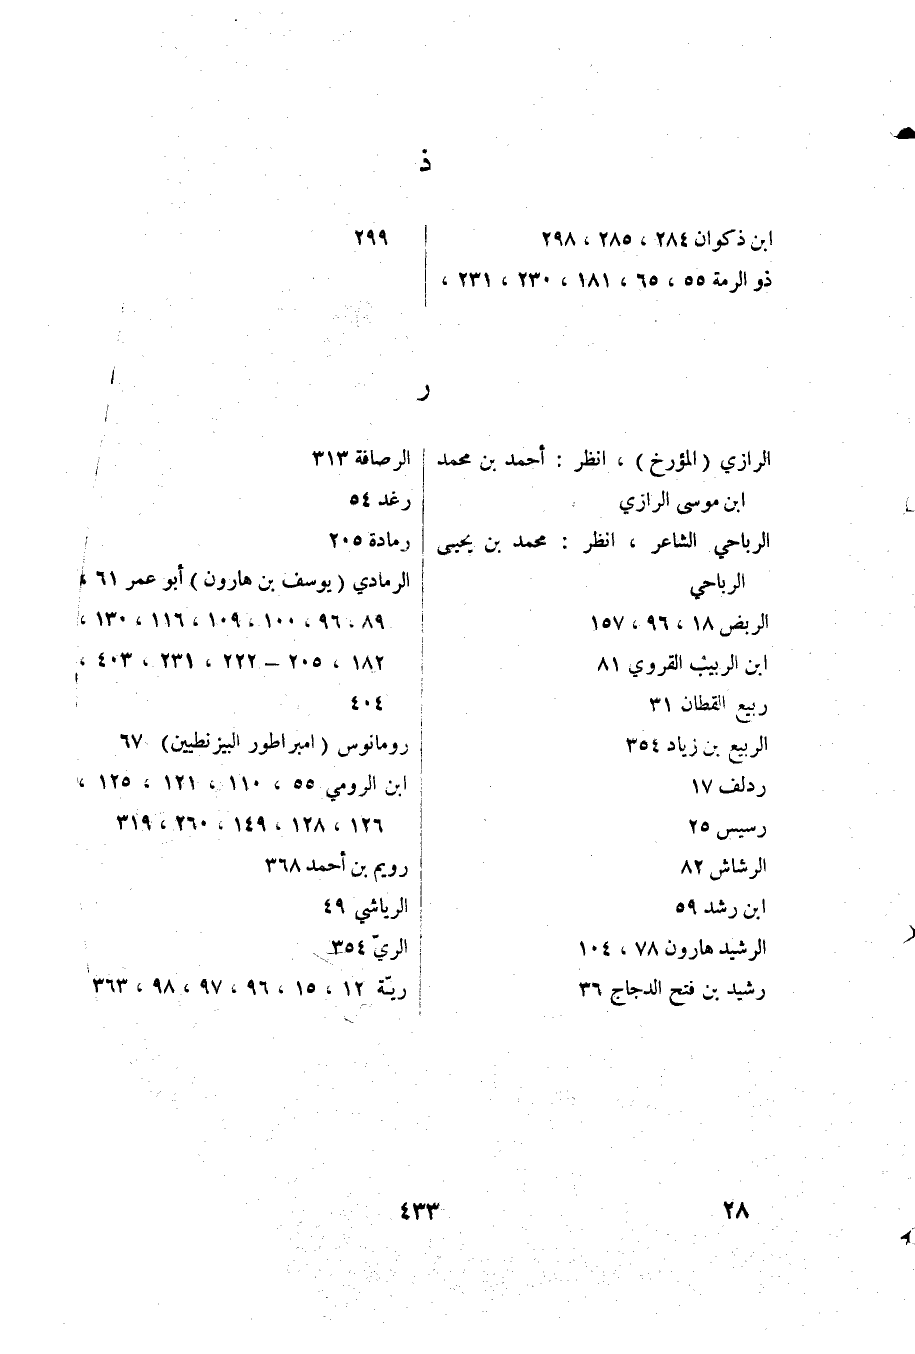 ذ
ابن ذكوان ٢٨٤ ، ٢٨٥ ، ٢٩٨
ذو الرمة ٥٥ ، ٦٥ ، ١٨١ ، ٢٣٠ ، ٢٣١ ،
٢٩٩
ر
الرازي ( المؤرخ ) ، انظر : أحمد بن محمد
ابن موسى الرازي
الرباحي الشاعر ، انظر : محمد بن يحيى
الرباحي
الربض ١٨ ، ٩٦ ، ١٥٧
ابن الربيب القروي ٨١
ربيع القطان ٣١
الربيع بن زياد ٣٥٤
ردلف ١٧
رسيس ٢٥
الرشاش ٨٢
ابن رشد ٥٩
الرشيد هارون ٧٨ ، ١٠٤
رشيد بن فتح الدجاج ٣٦
الرصافة ٣١٣
رغد ٥٤
رمادة ٢٠٥
الرمادي ( يوسف بن هارون ) أبو عمر ٦١ ،
٨٩ ، ٩٦ ، ١٠٠ ، ١٠٩ ، ١١٦ ، ١٣٠ ،
١٨٢ ، ٢٠٥ – ٢٢٢ ، ٢٣١ ، ٤٠٣ ،
٤٠٤
رومانوس ( امبراطور البيزنطيين ) ٦٧
ابن الرومي ٥٥ ، ١١٠ ، ١٢١ ، ١٢٥ ،
١٢٦ ، ١٢٨ ، ١٤٩ ، ٢٦٠ ، ٣١٩
رويم بن أحمد ٣٦٨
الرياشي ٤٩
الريّ ٣٥٤
ريّة ١٢ ، ١٥ ، ٩٦ ، ٩٧ ، ٩٨ ، ٣٦٣
٢٨
٤٣٣